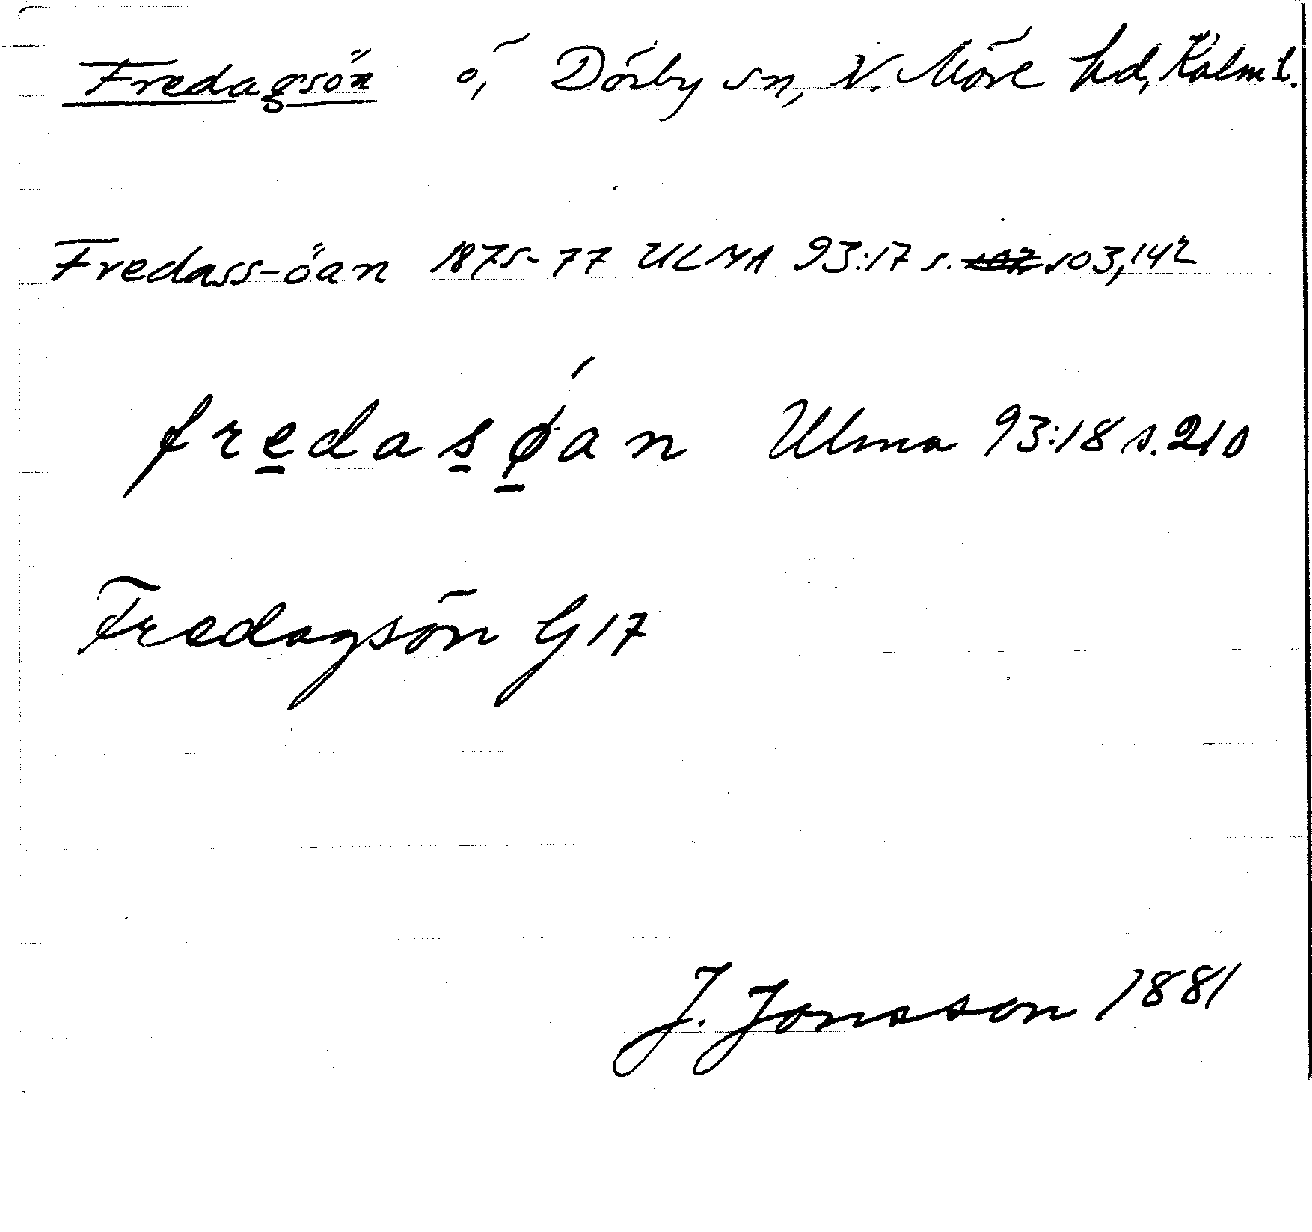 Fredagsön ö, Dörby sn, N. Möre hd, Kalm l.
Fredass-öan 1875-77 ULMA 93:17 s. 103, 142
fredasǿan Ulma 93:18 s. 210
Fredagsön G 17
J. Jonsson 1881